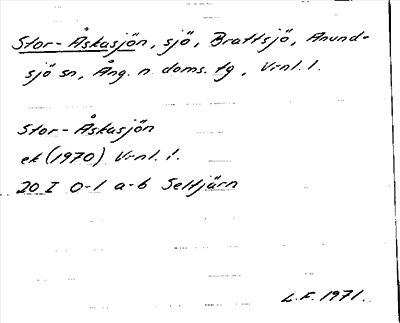 Stor-Åskasjön, sjö, Brattsjö, Anund-
sjö sn, Ång. n doms. tg, Vrnl. l.
Stor-Åskasjön
ek (1970) Vrnl. l.
20 I 0-1 a-b Seltjärn
L.F. 1971.